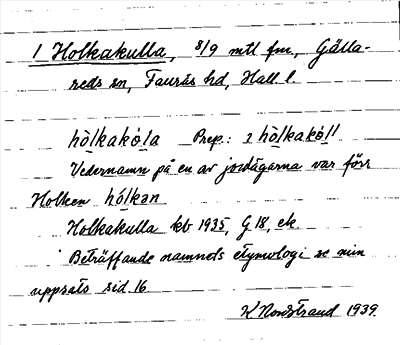 1 Holkakulla, 8/9 mtl fm, Gälla-
reds sn, Faurås hd, Hall. l.
hòlkakọ́la Prep.: 2 hòlkakọ́ll
Vedernamn på en av jordägarna var förr
Holken hólkən
Holkakulla kb 1935, G 18, ek.
Beträffande namnets etymologi se min
uppsats sid. 16
K Nordstrand 1939.